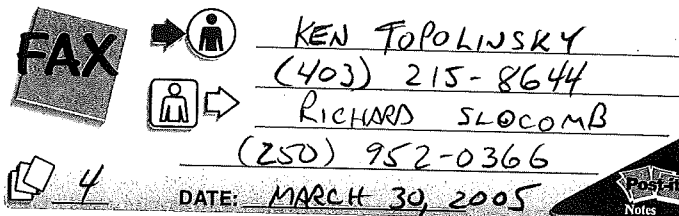 FAX
KEN TOPOLINSKY
(403) 215-8644
RICHARD SLOCOMB
(250) 952-0366
4 DATE: MARCH 30, 2005
Post-it
Notes